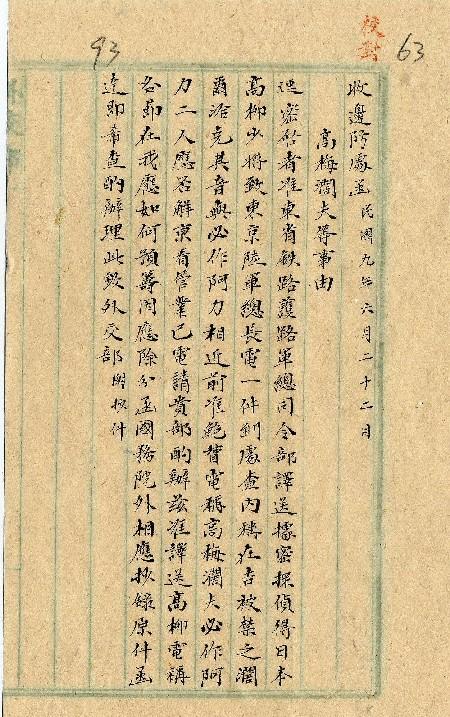 校對
63
93
收邊防處函 民國九年六月二十二日
高梅瀾夫等事由
逕密啓者准東省鉄路護路軍總司令部譯送據密探偵得日本
高柳少將致東京陸軍總長電一件到處查內稱在吉被禁之瀾
爾洽克其音與必作阿力相近前准鮑督電稱高梅瀾夫必作阿
力二人應否解京看管業已電請貴部酌辦茲准譯送高柳電稱
各節在我應如何預籌因應除分函國務院外相應抄錄原件函
達即希查酌辦理此致外交部 附抄件